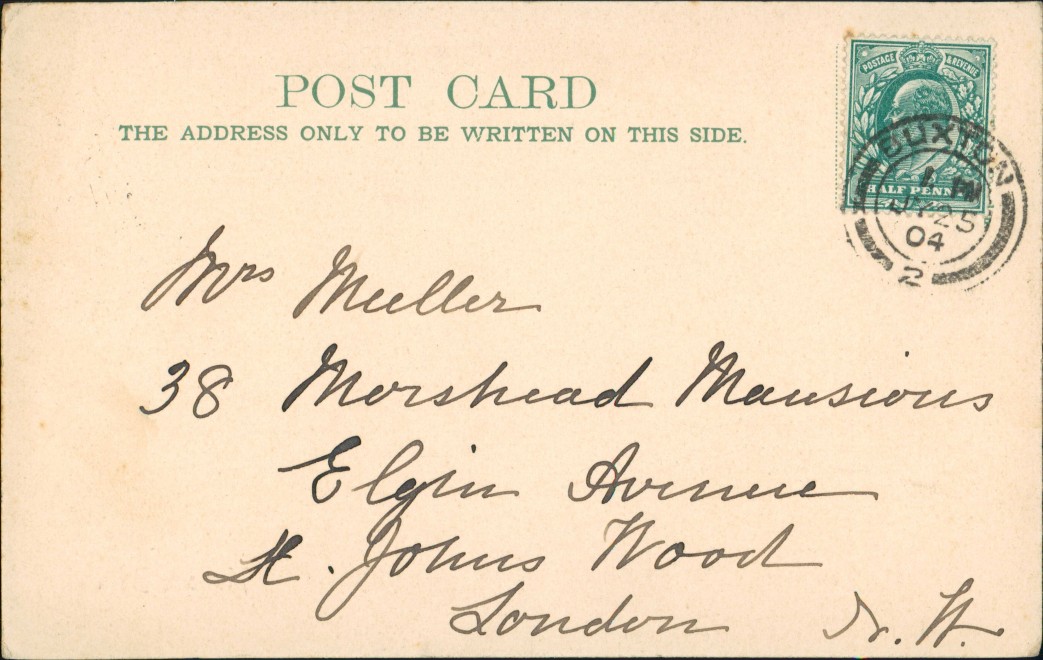 POST CARD
THE ADDRESS ONLY TO BE WRITTEN ON THIS SIDE.
POSTAGE & REVENUE
HALF PENN
BUXTON
25
04
2
Mrs Muller
38 Morshead Mansions
Elgin Avenue
St. Johns Wood
London N. W.